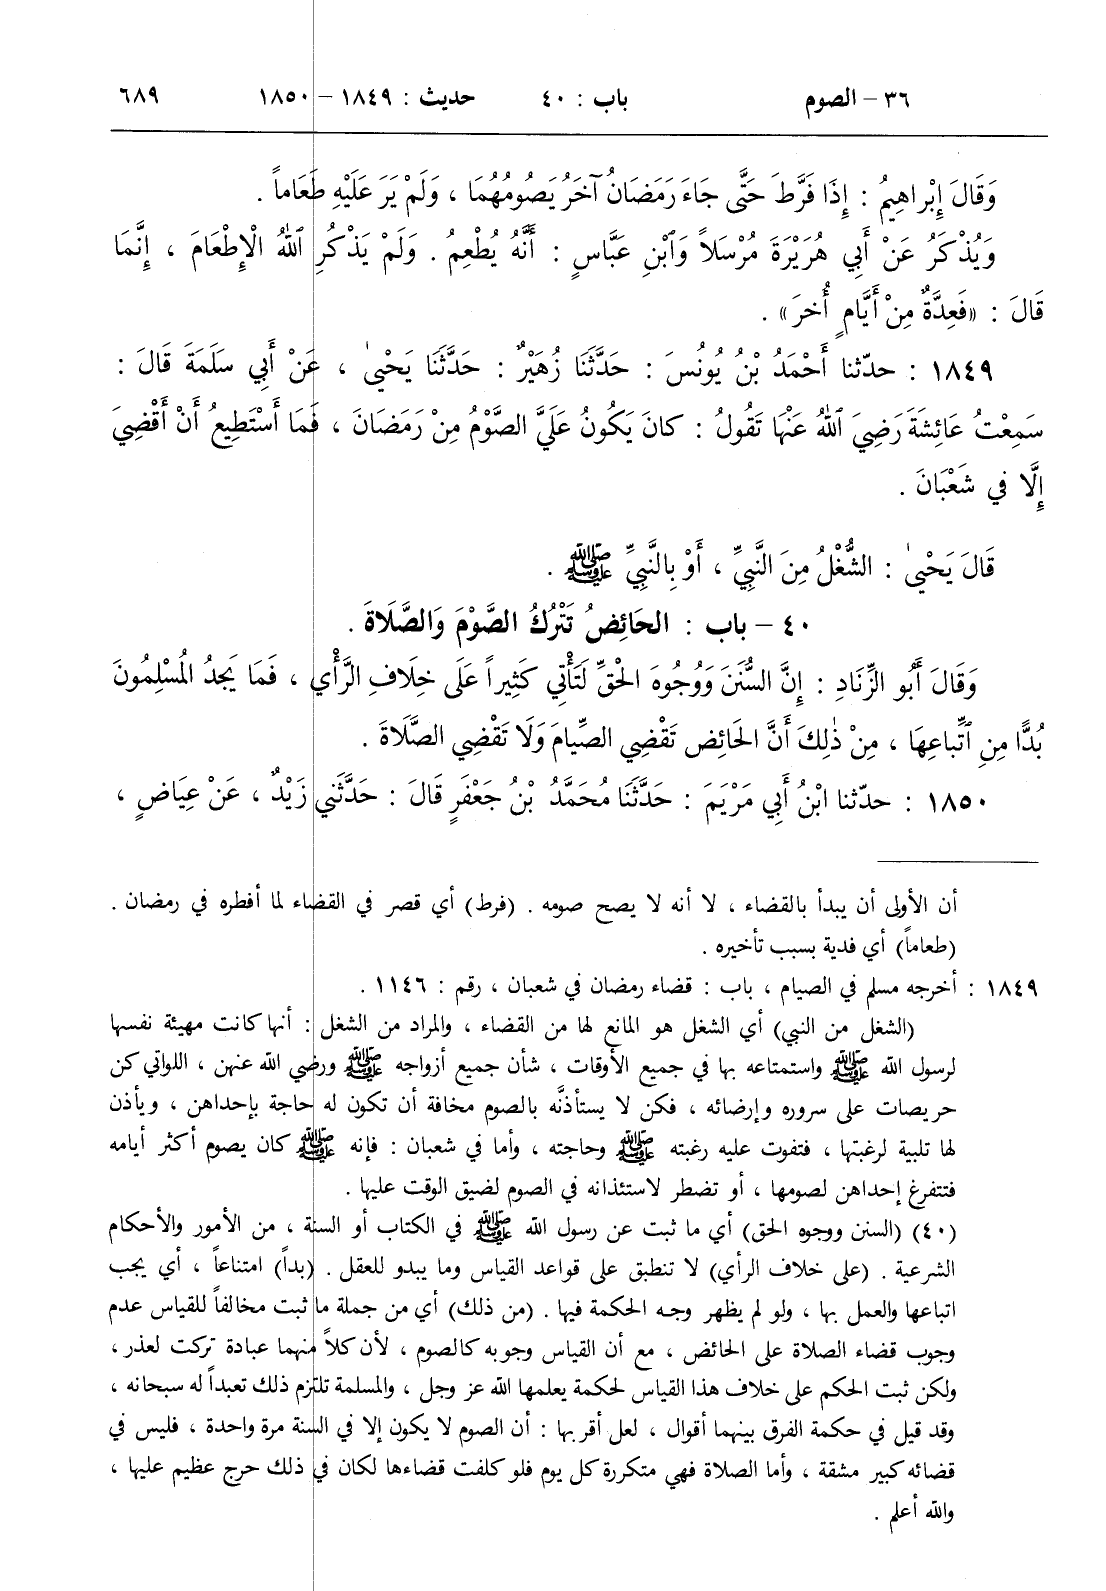 ٣٦ – الصوم باب : ٤٠ حديث : ١٨٤٩ – ١٨٥٠ ٦٨٩
وَقَالَ إِبْراهِيمُ : إِذَا فَرَّطَ حَتَّى جَاءَ رَمَضَانُ آخَرُ يَصُومُهُمَا ، وَلَمْ يَرَ عَلَيْهِ طَعَاماً .
وَيُذْكَرُ عَنْ أَبِي هُرَيْرَةَ مُرْسَلاً وَٱبْنِ عَبَّاسٍ : أَنَّهُ يُطْعِمُ . وَلَمْ يَذْكُرِ ٱللهُ الْإِطْعَامَ ، إِنَّمَا
قَالَ : «فَعِدَّةٌ مِنْ أَيَّامٍ أُخَرَ» .
١٨٤٩ : حدّثنا أَحْمَدُ بْنُ يُونُسَ : حَدَّثَنَا زُهَيْرٌ : حَدَّثَنَا يَحْيىٰ ، عَنْ أَبِي سَلَمَةَ قَالَ :
سَمِعْتُ عَائِشَةَ رَضِيَ ٱللهُ عَنْهَا تَقُولُ : كانَ يَكُونُ عَلَيَّ الصَّوْمُ مِنْ رَمَضَانَ ، فَمَا أَسْتَطِيعُ أَنْ أَقْضِيَ
إِلَّا في شَعْبَانَ .
قَالَ يَحْيىٰ : الشُّغْلُ مِنَ النَّبِيِّ ، أَوْ بِالنَّبِيِّ ﷺ .
٤٠ – باب : الحَائِضُ تَتْرُكُ الصَّوْمَ وَالصَّلَاةَ .
وَقَالَ أَبُو الزِّنَادِ : إِنَّ السُّنَنَ وَوُجُوهَ الْحَقِّ لَتَأْتِي كَثِيراً عَلَى خِلَافِ الرَّأْيِ ، فَمَا يَجِدُ الْمُسْلِمُونَ
بُدًّا مِنِ ٱتِّباعِهَا ، مِنْ ذٰلِكَ أَنَّ الحَائِضَ تَقْضِي الصِّيامَ وَلَا تَقْضِي الصَّلَاةَ .
١٨٥٠ : حدّثنا ابْنُ أَبِي مَرْيَمَ : حَدَّثَنَا مُحَمَّدُ بْنُ جَعْفَرٍ قَالَ : حَدَّثَنِي زَيْدٌ ، عَنْ عِيَاضٍ ،
أن الأولى أن يبدأ بالقضاء ، لا أنه لا يصح صومه . (فرط) أي قصر في القضاء لما أفطره في رمضان .
(طعاماً) أي فدية بسبب تأخيره .
١٨٤٩ : أخرجه مسلم في الصيام ، باب : قضاء رمضان في شعبان ، رقم : ١١٤٦ .
(الشغل من النبي) أي الشغل هو المانع لها من القضاء ، والمراد من الشغل : أنها كانت مهيئة نفسها
لرسول الله ﷺ واستمتاعه بها في جميع الأوقات ، شأن جميع أزواجه ﷺ ورضي الله عنهن ، اللواتي كن
حريصات على سروره وإرضائه ، فكن لا يستأذنَّه بالصوم مخافة أن تكون له حاجة بإحداهن ، ويأذن
لها تلبية لرغبتها ، فتفوت عليه رغبته ﷺ وحاجته ، وأما في شعبان : فإنه ﷺ كان يصوم أكثر أيامه
فتتفرغ إحداهن لصومها ، أو تضطر لاستئذانه في الصوم لضيق الوقت عليها .
(٤٠) (السنن ووجوه الحق) أي ما ثبت عن رسول الله ﷺ في الكتاب أو السنة ، من الأمور والأحكام
الشرعية . (على خلاف الرأي) لا تنطبق على قواعد القياس وما يبدو للعقل . (بداً) امتناعاً ، أي يجب
اتباعها والعمل بها ، ولو لم يظهر وجه الحكمة فيها . (من ذلك) أي من جملة ما ثبت مخالفاً للقياس عدم
وجوب قضاء الصلاة على الحائض ، مع أن القياس وجوبه كالصوم ، لأن كلاً منهما عبادة تركت لعذر ،
ولكن ثبت الحكم على خلاف هذا القياس لحكمة يعلمها الله عز وجل ، والمسلمة تلتزم ذلك تعبداً له سبحانه ،
وقد قيل في حكمة الفرق بينهما أقوال ، لعل أقربها : أن الصوم لا يكون إلا في السنة مرة واحدة ، فليس في
قضائه كبير مشقة ، وأما الصلاة فهي متكررة كل يوم فلو كلفت قضاءها لكان في ذلك حرج عظيم عليها ،
والله أعلم .